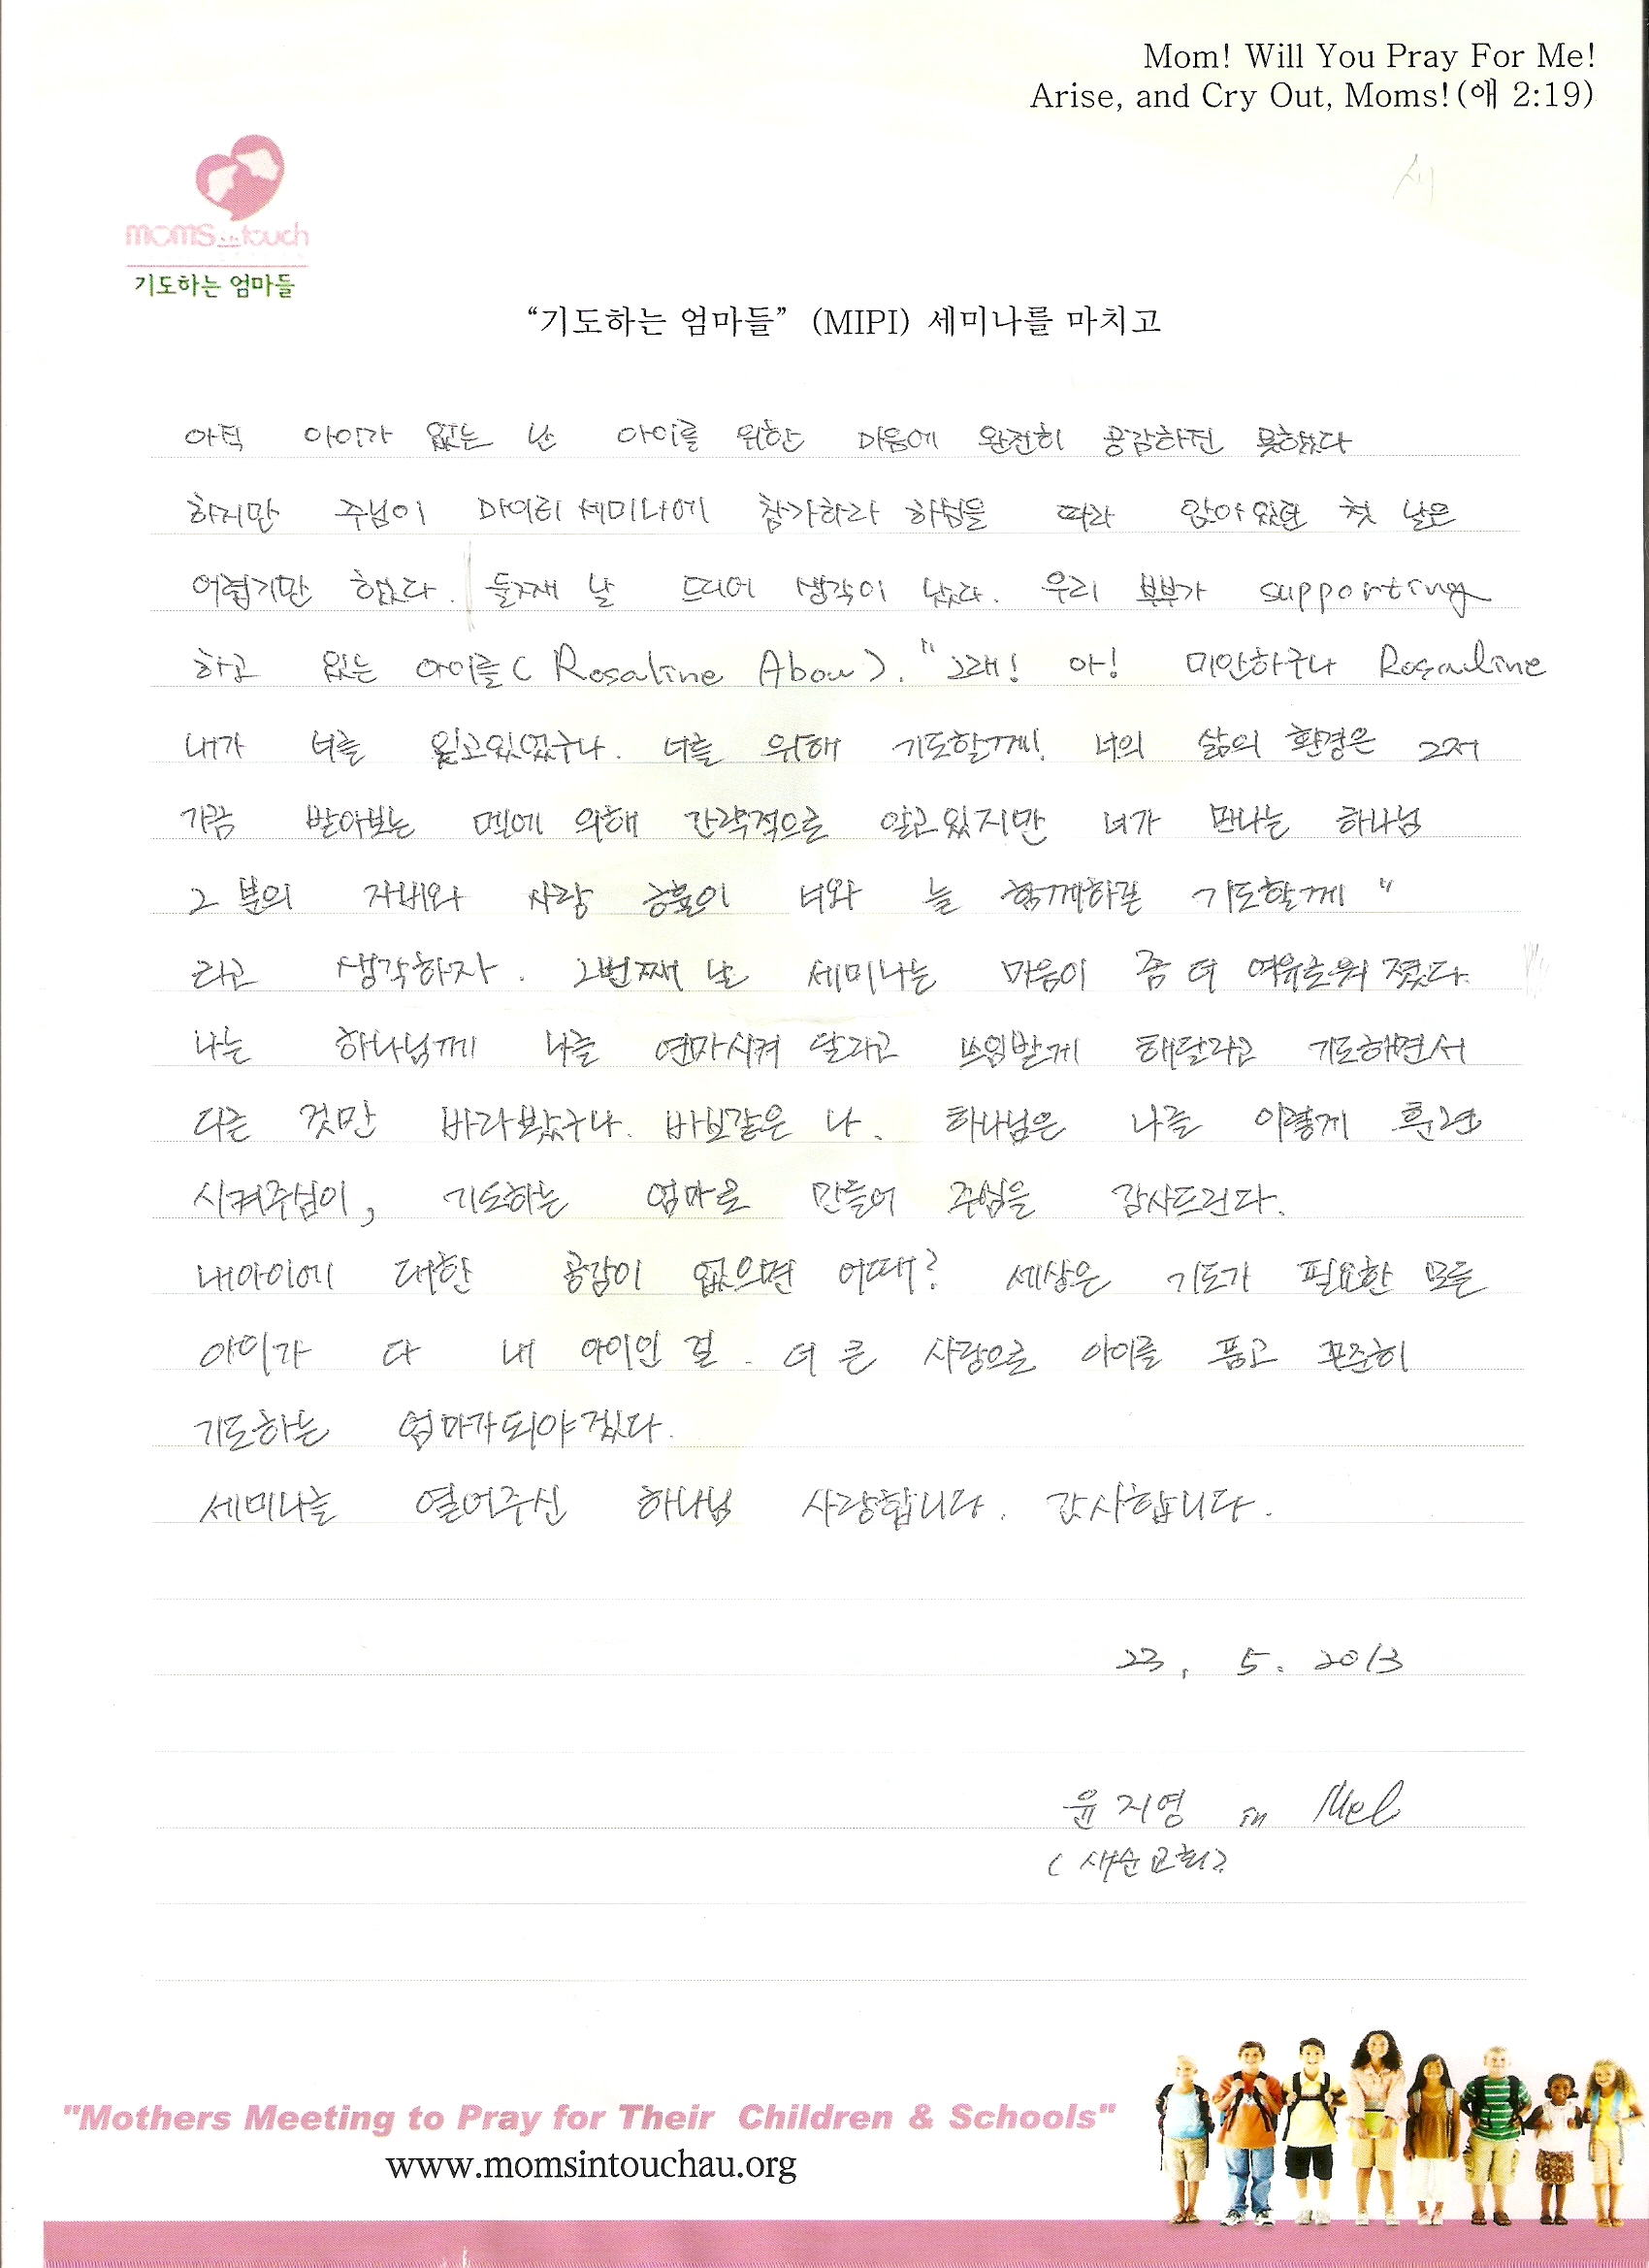 Mom! Will You Pray For Me!
Arise, and Cry Out, Moms!(애 2:19)
moms in touch
기도하는 엄마들
“기도하는 엄마들” (MIPI) 세미나를 마치고
아직 아이가 없는 난 아이를 위한 마음에 완전히 공감하진 못했다
하지만 주님이 마이티 세미나에 참가하라 하심을 따라 앉아있던 첫 날은
어렵기만 했다. 둘째 날 드디어 생각이 났다. 우리 부부가 supporting
하고 있는 아이를 (Rosaline Abou). "그래! 아! 미안하구나 Rosaline
내가 너를 잊고있었구나. 너를 위해 기도할께! 너의 삶의 환경은 그저
가끔 받아보는 멜에 의해 간략적으로 알고있지만 너가 만나는 하나님
그 분의 자비와 사랑 긍휼이 너와 늘 함께하길 기도할께"
라고 생각하자. 2번째 날 세미나는 마음이 좀 더 여유로워 졌다.
나는 하나님께 나를 연마시켜 달라고 쓰임받게 해달라고 기도하면서
다른 것만 바라봤구나. 바보같은 나. 하나님은 나를 이렇게 훈련
시켜주심이, 기도하는 엄마로 만들어 주심을 감사드린다.
내아이에 대한 공감이 없으면 어때? 세상은 기도가 필요한 모든
아이가 다 내 아이인 걸. 더 큰 사랑으로 아이를 품고 꾸준히
기도하는 엄마가되야겠다.
세미나를 열어주신 하나님 사랑합니다. 감사합니다.
23. 5. 2013
윤지영 in Mel
(새순교회)
"Mothers Meeting to Pray for Their Children & Schools"
www.momsintouchau.org